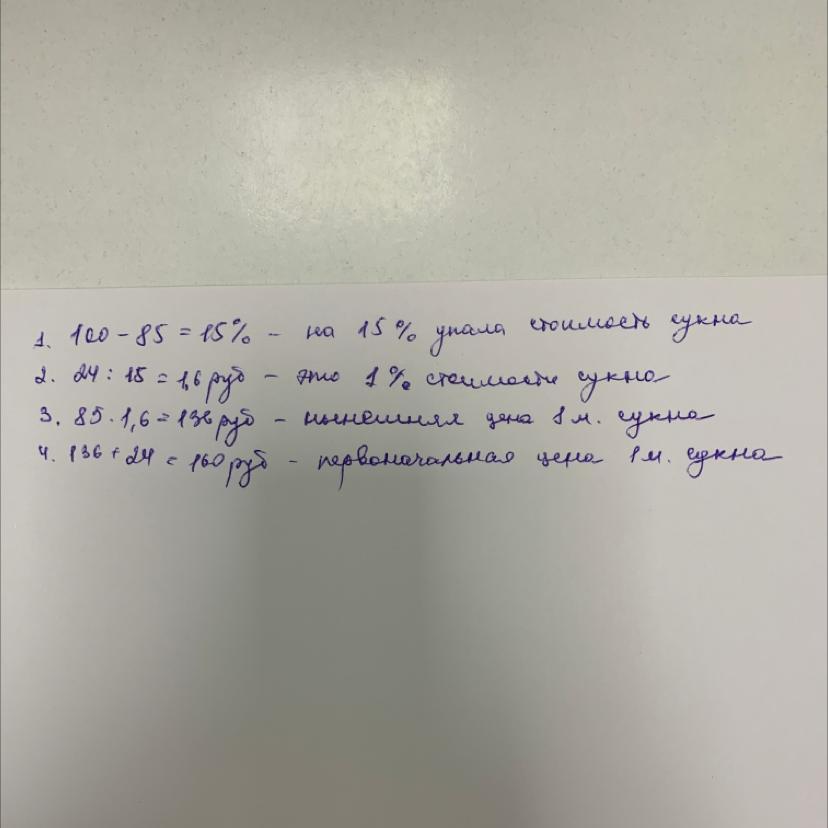 1. 100 - 85 = 15% - на 15% упала стоимость сукна
2. 24 : 15 = 1,6 руб - это 1% стоимости сукна
3. 85 · 1,6 = 136 руб - нынешняя цена 1 м. сукна
4. 136 + 24 = 160 руб - первоначальная цена 1 м. сукна